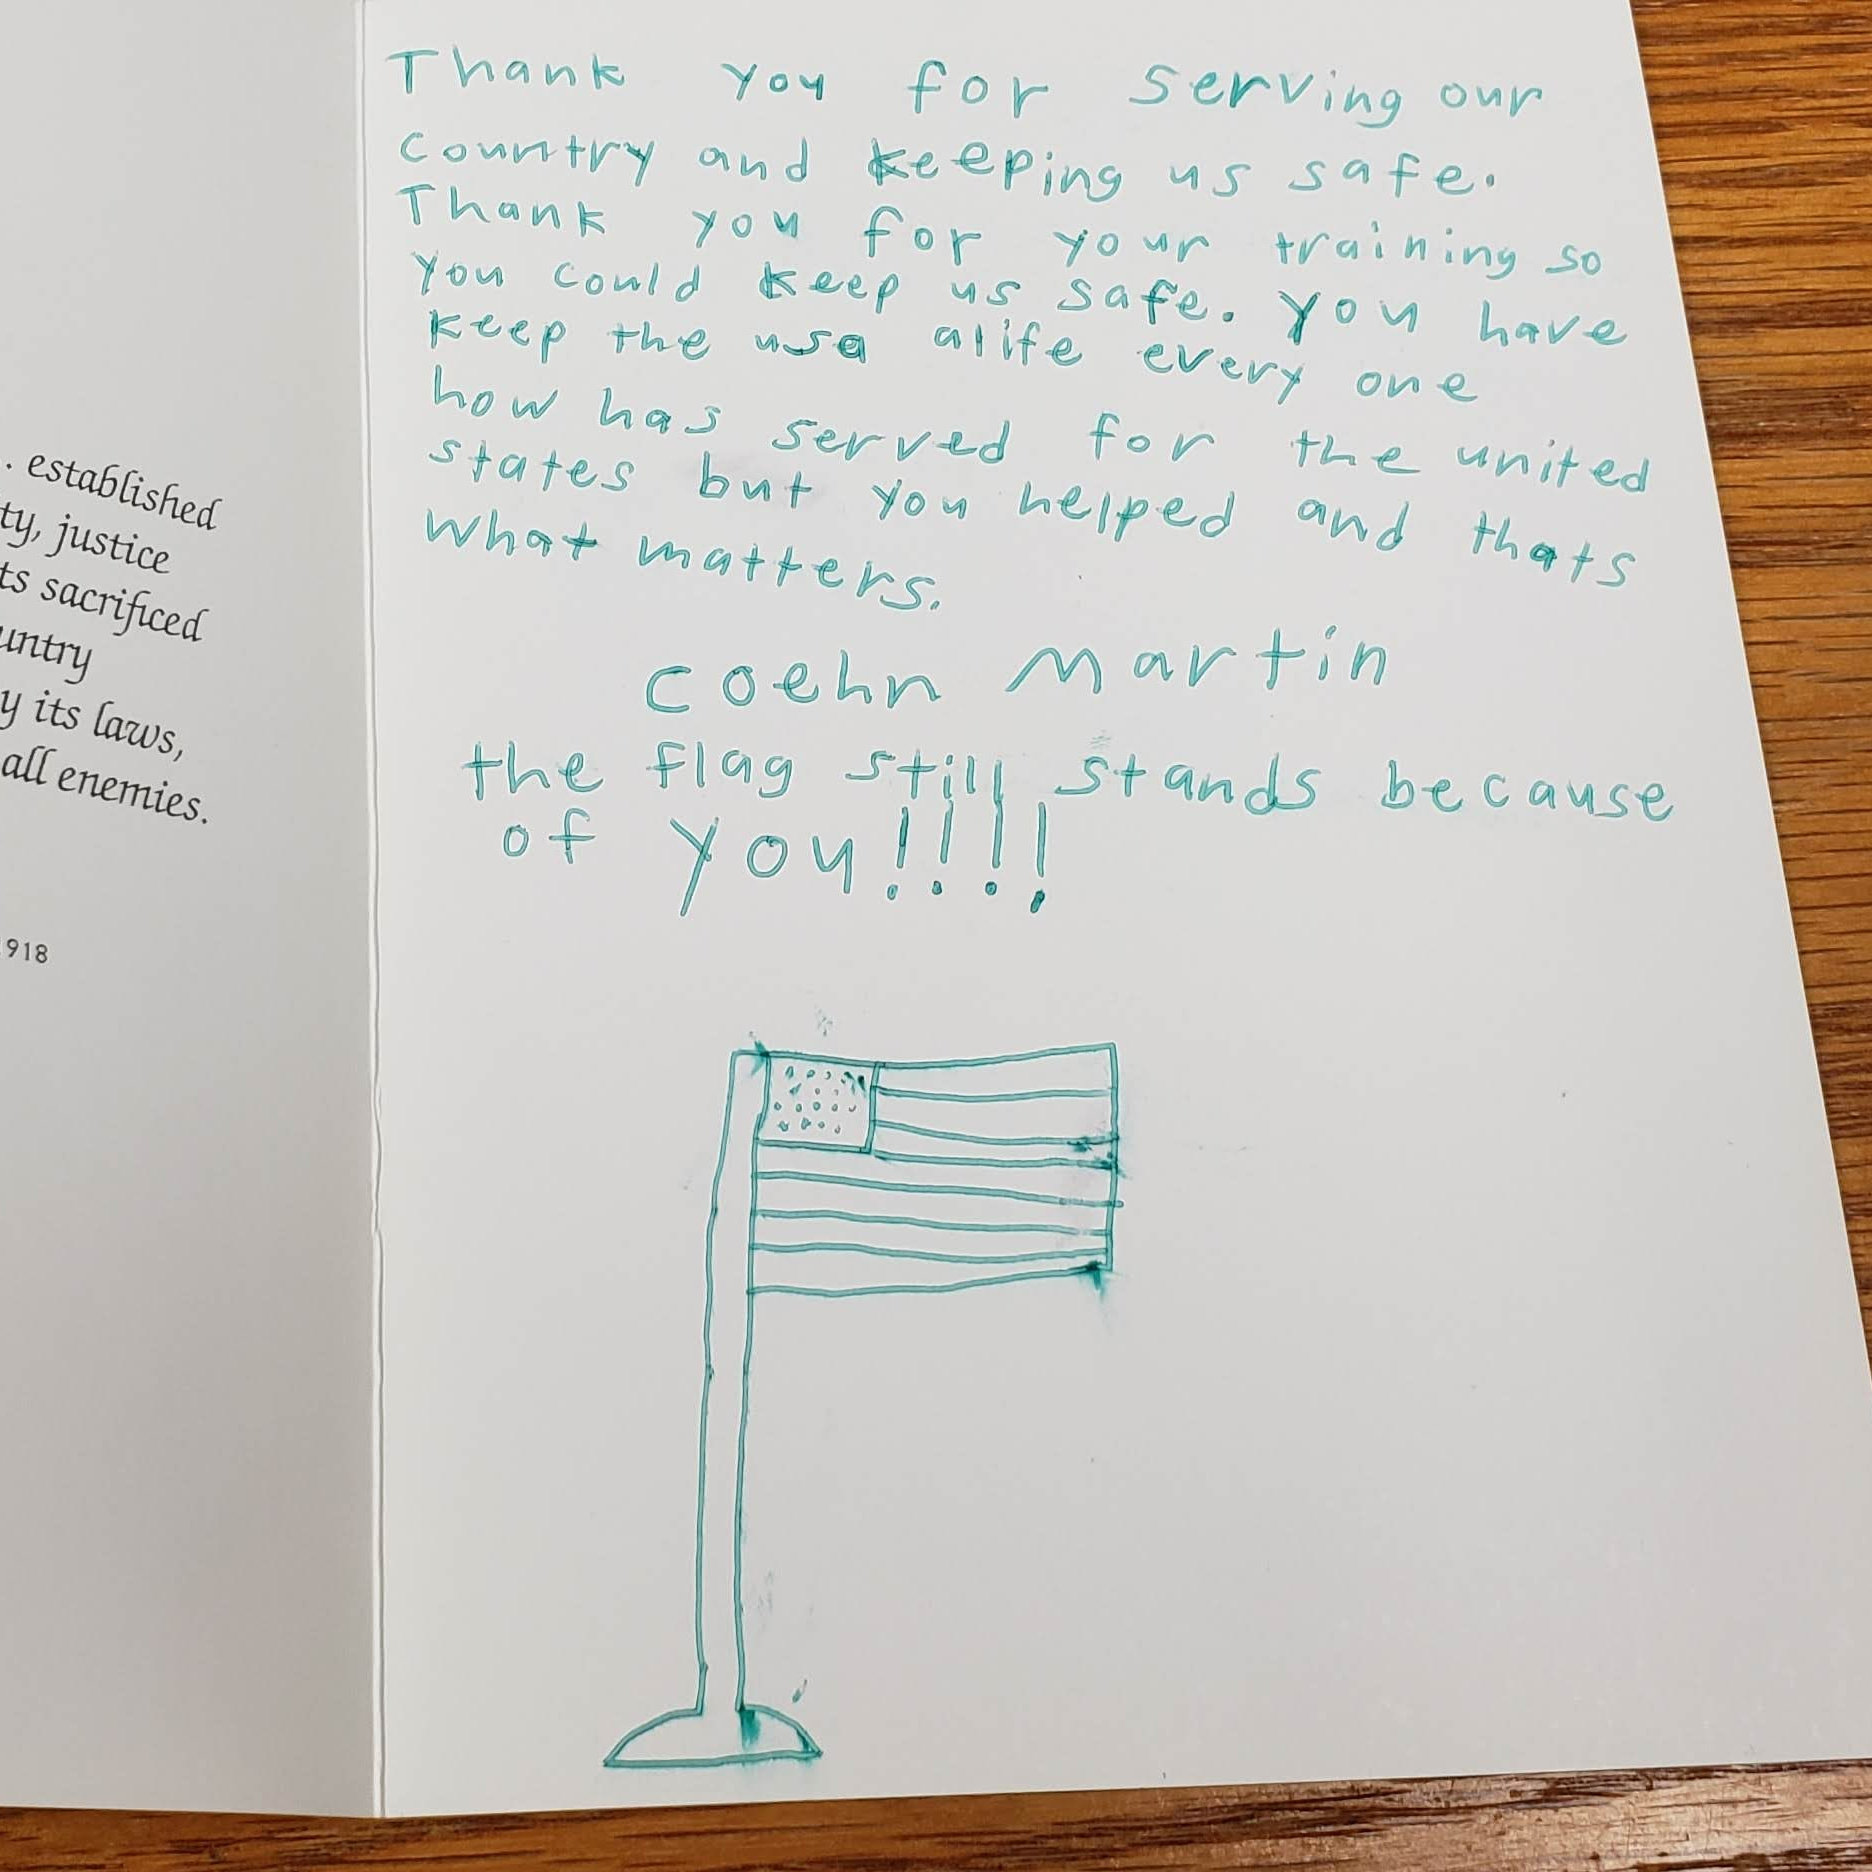 . established
ty, justice
ts sacrificed
untry
y its laws,
all enemies.
918
Thank you for serving our
country and keeping us safe.
Thank you for your training so
you could keep us safe. You have
keep the usa alife every one
how has served for the united
states but you helped and thats
what matters.
Coehn Martin
the flag still stands because
of you!!!!